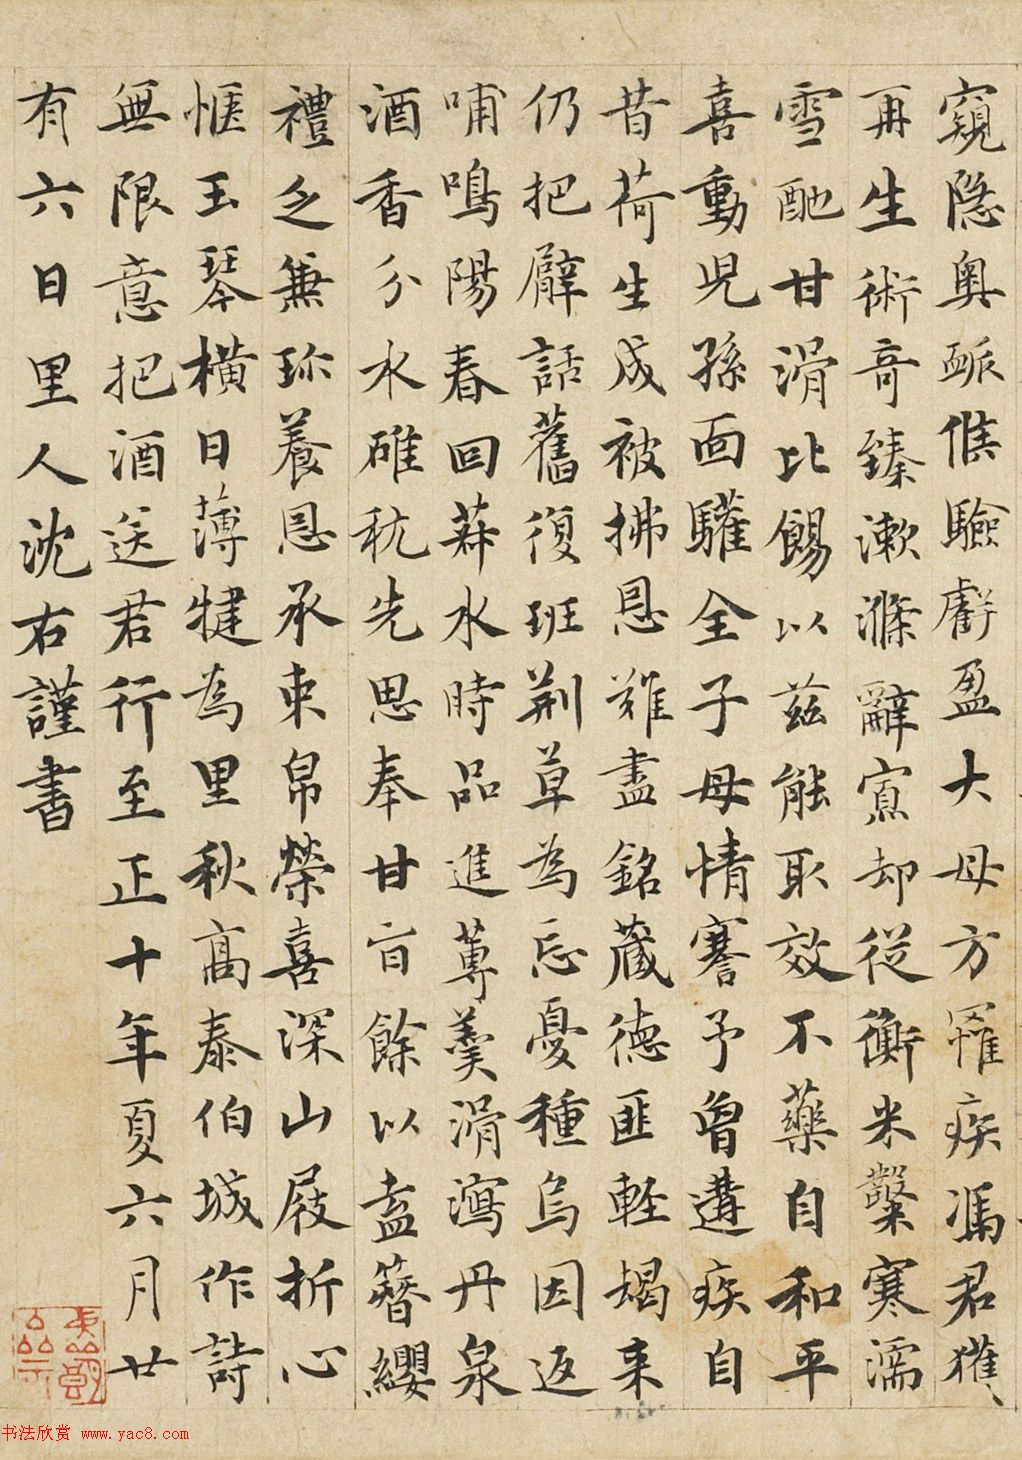 窺隐奥䘑候驗虧盈大母方罹疾馮君獲
再生術竒臻漱滌辭賔却從衡米糳寒濡
雪酏甘滑比餳以兹能取效不藥自和平
喜動児孫面驩全子母情謇予曾遘疾自
昔荷生成被拂恩難盡銘藏德匪輕朅来
仍把臂話舊復班荆草為忘憂種烏因返
哺鳴陽春回莽水時品進蓴羮滑瀉丹泉
酒香分水碓秔先思奉甘旨餘以盍簪纓
禮之兼珎養恩承束帛榮喜深山屐折心
惬玉琴横日薄犍為里秋高泰伯城作詩
無限意把酒送君行至正十年夏六月廿
有六日里人沈右謹書
书法欣赏 www.yac8.com